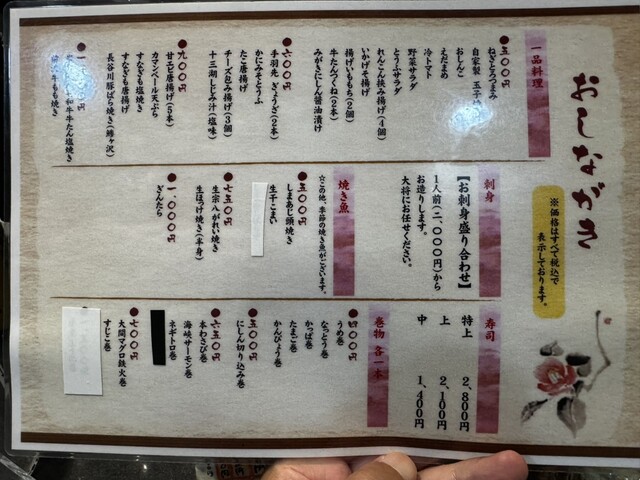 おしながき
※価格はすべて税込で
表示しております。
一品料理
●五〇〇円
ねぎとろつまみ
自家製 玉子
おしんこ
えだまめ
冷トマト
野菜サラダ
とうふサラダ
れんこん挟み揚げ(4個)
いかげそ揚げ
揚げいももち(2個)
牛たんつくね(2本)
みがきにしん醤油漬け
●六〇〇円
手羽先 ぎょうざ(2本)
かにみそとうふ
たこ唐揚げ
チーズ包み揚げ(3個)
十三湖しじみ汁(塩味)
●九〇〇円
甘エビ唐揚げ(5本)
カマンベール天ぷら
すなぎも塩焼き
すなぎも唐揚げ
長谷川豚ばら焼き(鰺ヶ沢)
和牛牛たん塩焼き
牛もも焼き
刺身
【お刺身盛り合わせ】
1人前(二、〇〇〇円)から
お造りします。
大将にお任せください。
焼き魚
☆この他、季節の焼き魚がございます。
●五〇〇円
しまあじ頭焼き
生干こまい
●七五〇円
生宗八がれい焼き
生ほっけ焼き(半身)
●一、〇〇〇円
ぎんたら
寿司
特上 2,800円
上 2,100円
中 1,400円
巻物 各一本
●四〇〇円
うめ巻
なっとう巻
かっぱ巻
たまご巻
かんぴょう巻
●五〇〇円
にしん切り込み巻
●六五〇円
本わさび巻
海峡サーモン巻
ネギトロ巻
●七〇〇円
大間マグロ鉄火巻
すじこ巻